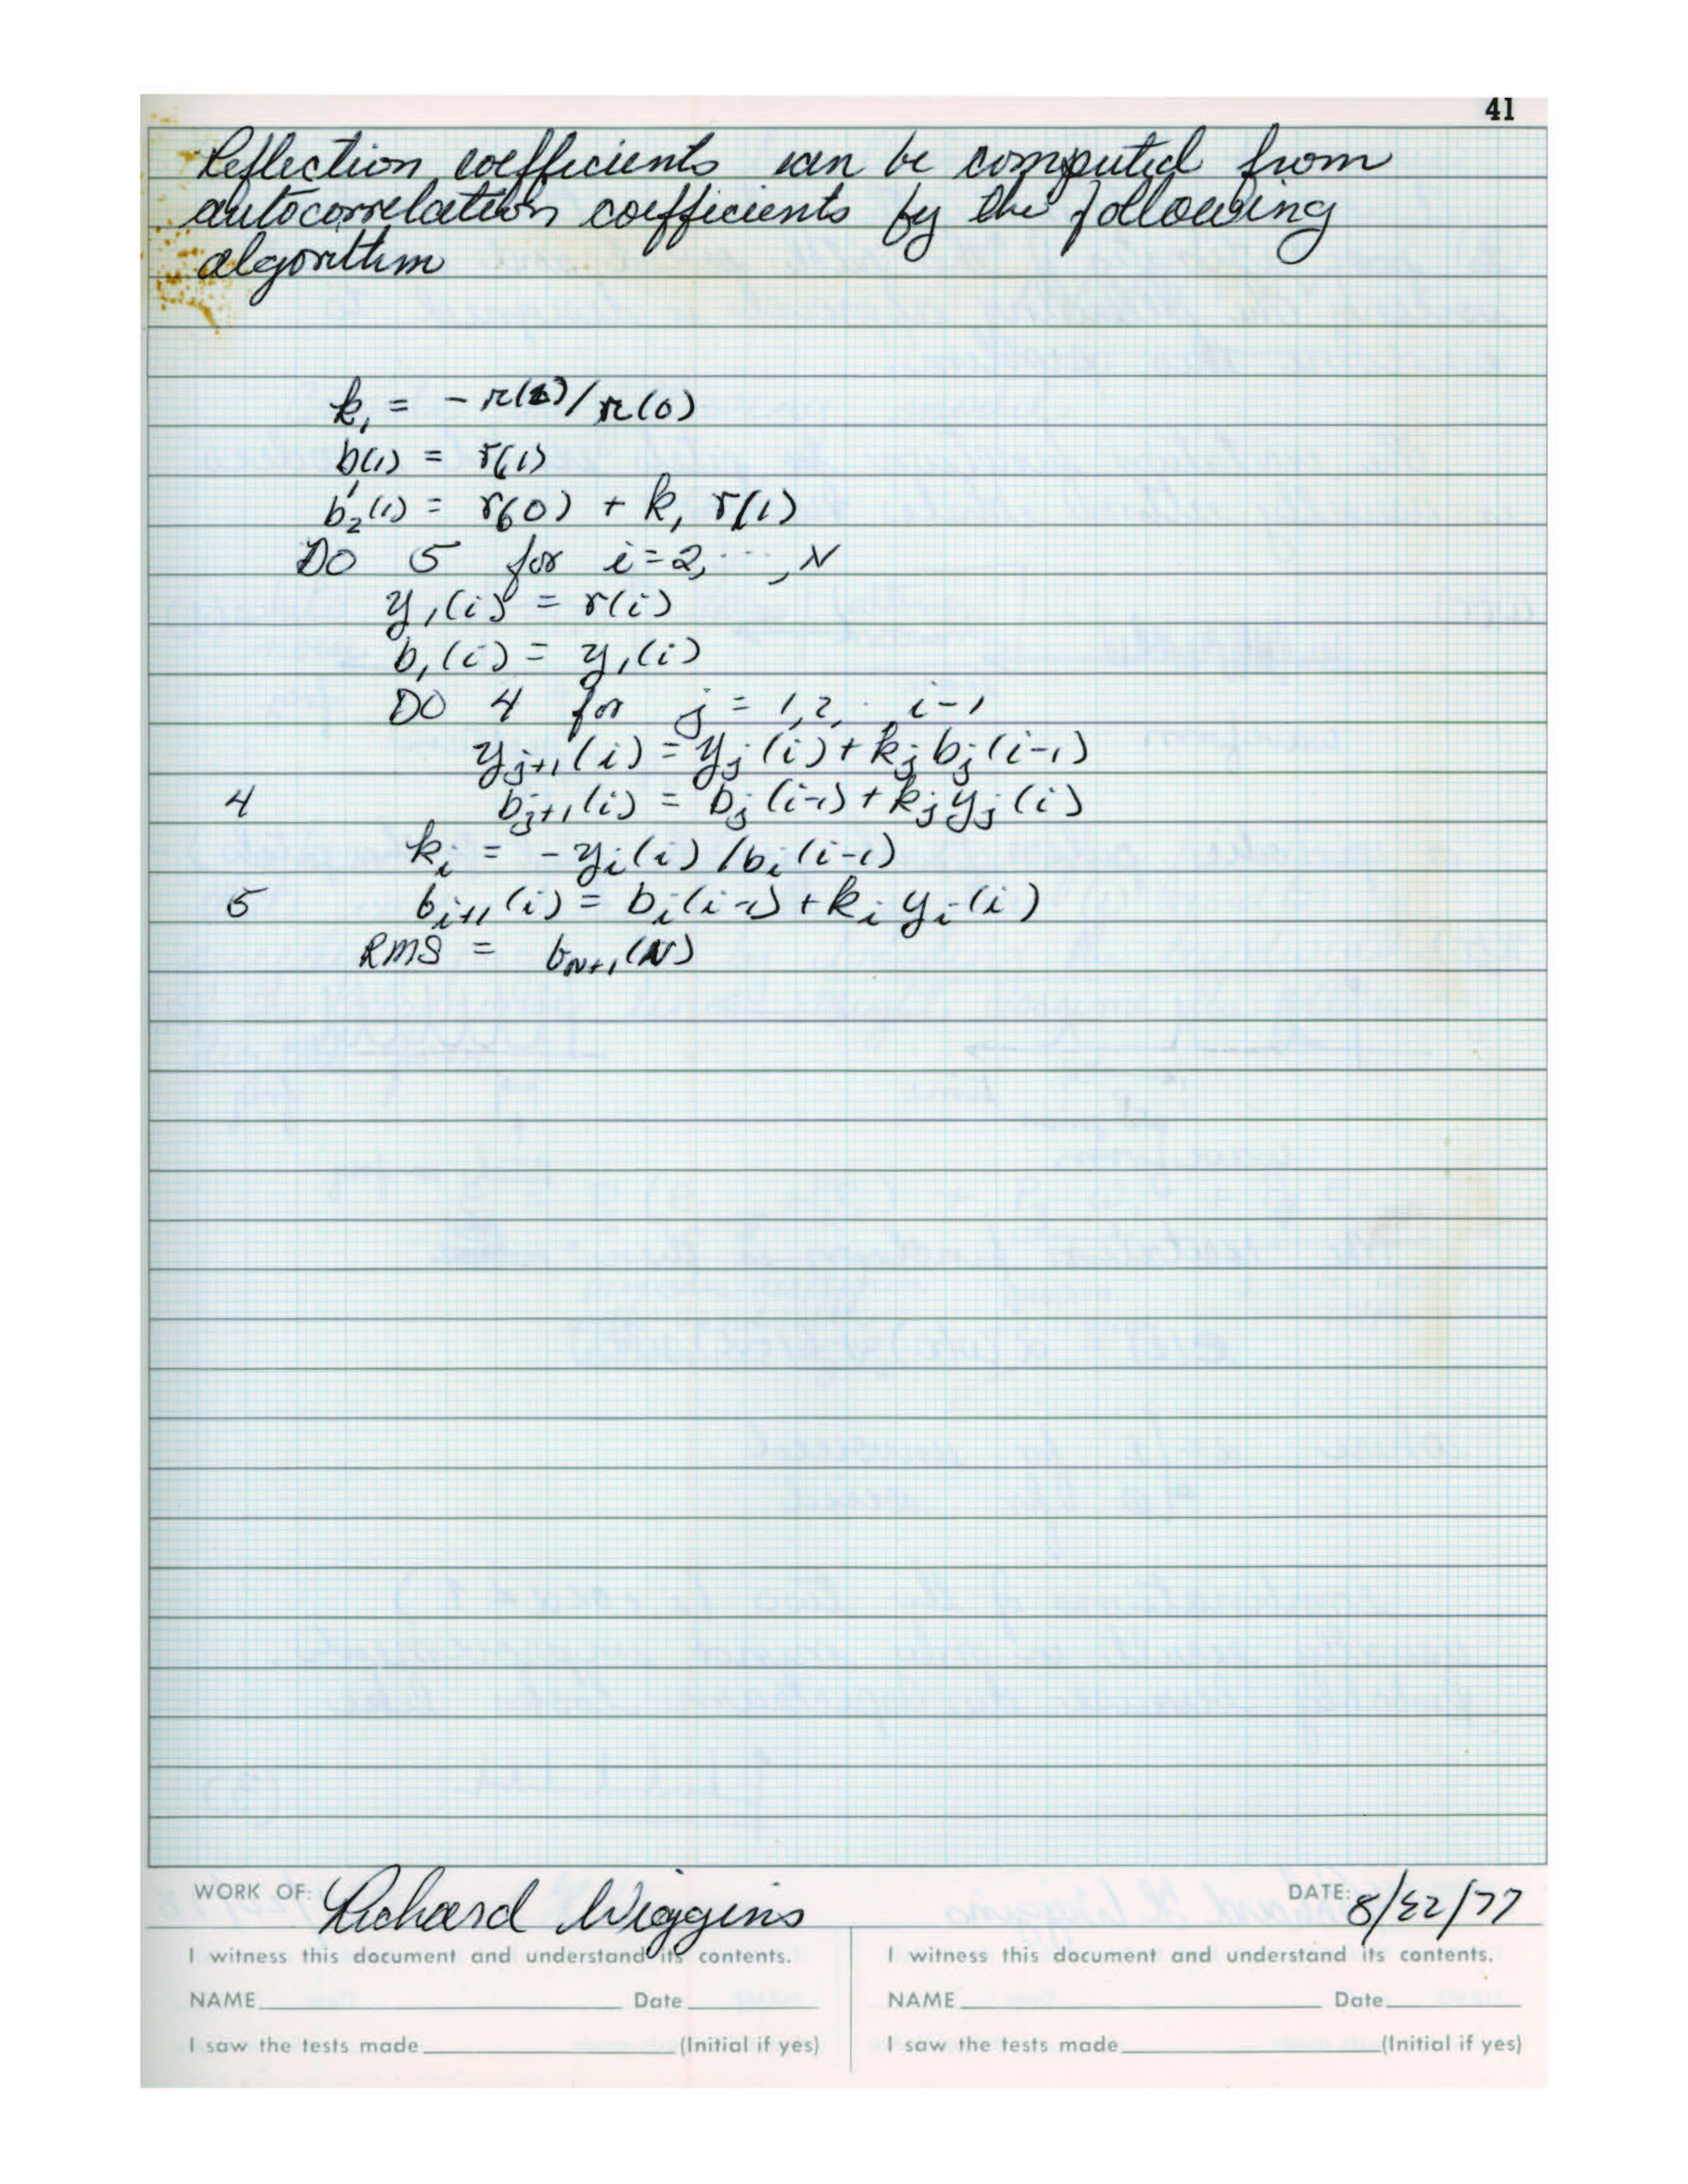 41
Reflection coefficients can be computed from
autocorrelation coefficients by the following
algorithm
k₁ = - r(1)/r(0)
b(1) = r(1)
b₂'(1) = r(0) + k₁ r(1)
DO 5 for i=2, ..., N
y₁(i) = r(i)
b₁(i) = y₁(i)
DO 4 for j = 1,2, . i-1
yⱼ₊₁(i) = yⱼ(i) + kⱼ bⱼ(i-1)
4 bⱼ₊₁(i) = bⱼ(i-1) + kⱼ yⱼ(i)
kᵢ = - yᵢ(i) / bᵢ(i-1)
5 bᵢ₊₁(i) = bᵢ(i-1) + kᵢ yᵢ(i)
RMS = b_N+1(N)
WORK OF: Richard Wiggins DATE: 8/22/77
I witness this document and understand its contents. I witness this document and understand its contents.
NAME Date NAME Date
I saw the tests made (Initial if yes) I saw the tests made (Initial if yes)